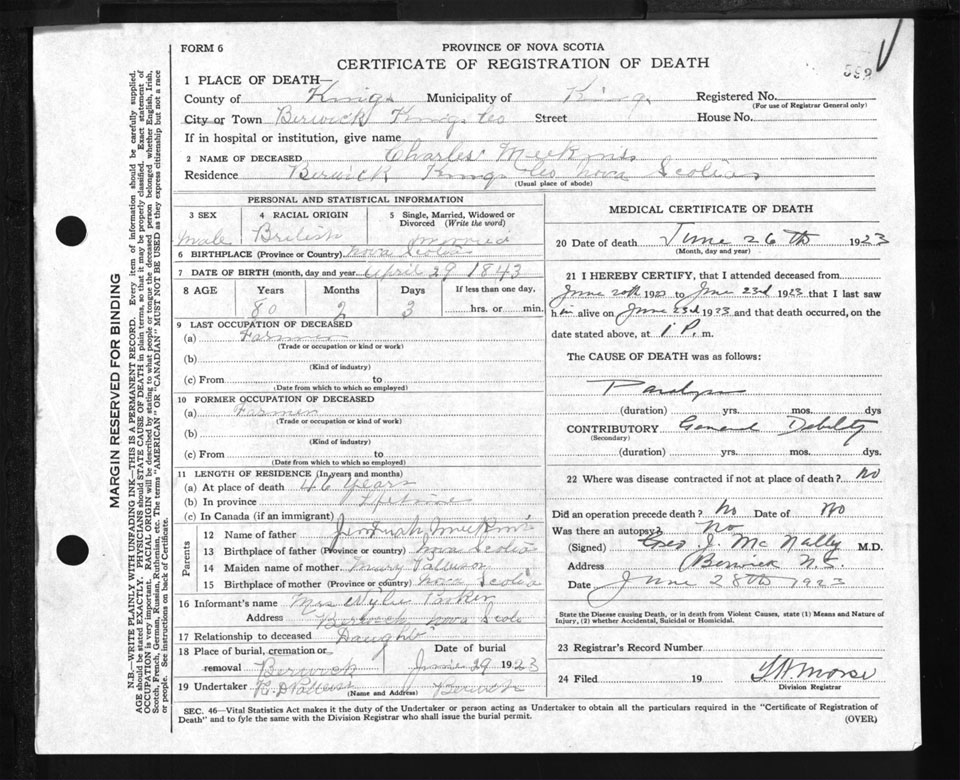 FORM 6
PROVINCE OF NOVA SCOTIA
CERTIFICATE OF REGISTRATION OF DEATH
592
1 PLACE OF DEATH—
County of Kings Municipality of Kings Registered No.
(For use of Registrar General only)
City or Town Berwick Kings Co Street House No.
If in hospital or institution, give name
2 NAME OF DECEASED Charles Meekins
Residence Berwick Kings Co Nova Scotia
(Usual place of abode)
PERSONAL AND STATISTICAL INFORMATION
3 SEX 4 RACIAL ORIGIN 5 Single, Married, Widowed or Divorced (Write the word)
Male British Married
6 BIRTHPLACE (Province or Country) Nova Scotia
7 DATE OF BIRTH (month, day and year) April 29 1843
8 AGE Years Months Days If less than one day,
80 2 3 hrs. or min.
9 LAST OCCUPATION OF DECEASED
(a) Farmer
(Trade or occupation or kind or work)
(b)
(Kind of industry)
(c) From to
(Date from which to which so employed)
10 FORMER OCCUPATION OF DECEASED
(a) Farmer
(Trade or occupation or kind of work)
(b)
(Kind of industry)
(c) From to
(Date from which to which so employed)
11 LENGTH OF RESIDENCE (In years and months)
(a) At place of death 46 Years
(b) In province Lifetime
(c) In Canada (if an immigrant)
Parents
12 Name of father Meekins
13 Birthplace of father (Province or country) Nova Scotia
14 Maiden name of mother Mary
15 Birthplace of mother (Province or country) Nova Scotia
16 Informant's name Mrs Wylie Parker
Address Berwick, Nova Scotia
17 Relationship to deceased Daughter
18 Place of burial, cremation or removal Date of burial
Berwick June 29 1923
19 Undertaker Berwick
(Name and Address)
MEDICAL CERTIFICATE OF DEATH
20 Date of death June 26th 1923
(Month, day and year)
21 I HEREBY CERTIFY, that I attended deceased from
June 20th 1923 to June 23rd 1923 that I last saw
him alive on June 23rd 1923 and that death occurred, on the
date stated above, at 1 P. m.
The CAUSE OF DEATH was as follows:
Paralysis
(duration) yrs. mos. dys
CONTRIBUTORY General Debility
(Secondary)
(duration) yrs. mos. dys.
22 Where was disease contracted if not at place of death? No
Did an operation precede death? No Date of No
Was there an autopsy? No
(Signed) Geo J. McNally M.D.
Address Berwick N.S.
Date June 28th 1923
State the Disease causing Death, or in death from Violent Causes, state (1) Means and Nature of
Injury, (2) whether Accidental, Suicidal or Homicidal.
23 Registrar's Record Number
24 Filed 19 Morse
Division Registrar
SEC. 46—Vital Statistics Act makes it the duty of the Undertaker or person acting as Undertaker to obtain all the particulars required in the "Certificate of Registration of
Death" and to fyle the same with the Division Registrar who shall issue the burial permit.
(OVER)
MARGIN RESERVED FOR BINDING
N.B.—WRITE PLAINLY WITH UNFADING INK—THIS IS A PERMANENT RECORD. Every item of information should be carefully supplied.
AGE should be stated EXACTLY. PHYSICIANS should STATE CAUSE OF DEATH in plain terms, so that it may be properly classified. Exact statement of
OCCUPATION is very important. RACIAL ORIGIN will be described by stating to what people or tongue the deceased person belonged whether English, Irish,
Scotch, French, German, Russian, Ruthenian, etc. The terms "AMERICAN" OR "CANADIAN" MUST NOT BE USED as they express citizenship but not a race
or people. See instructions on back of Certificate.